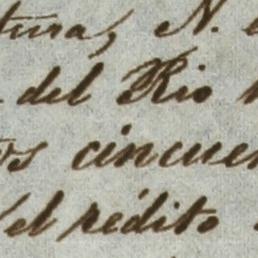 tura, N.
del Rio
os cincuen
el rédito